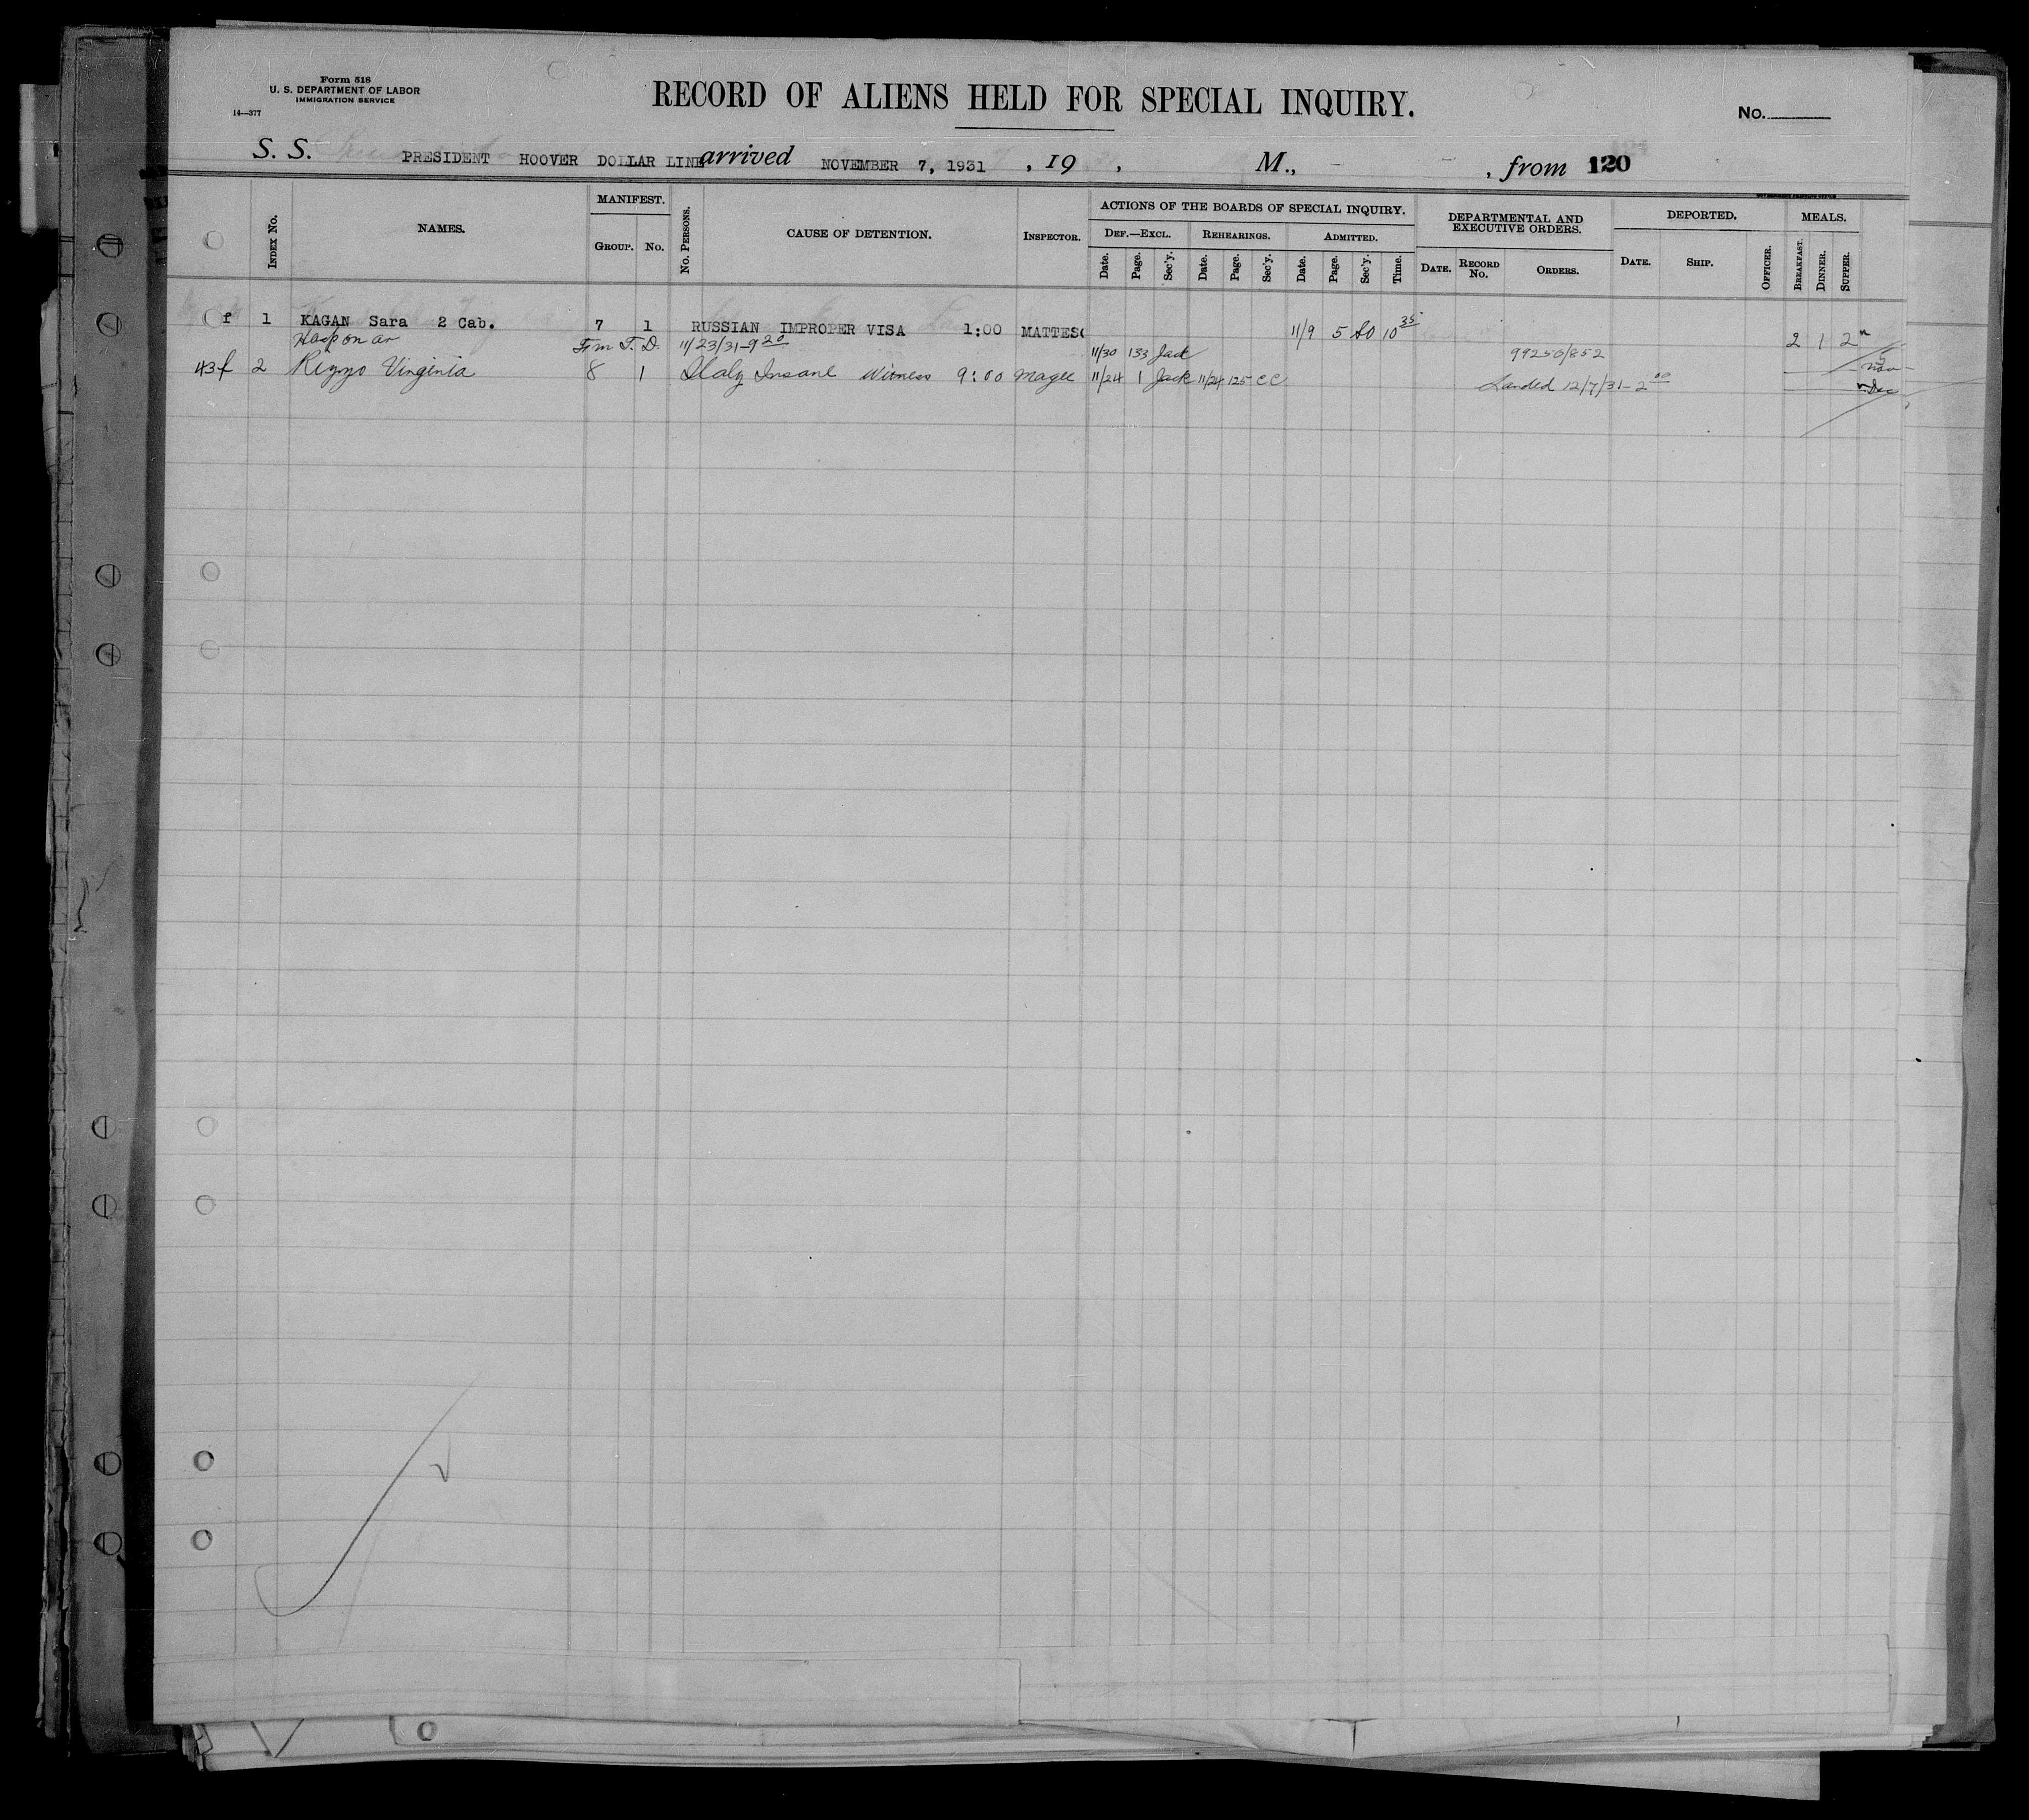 Form 518
U. S. DEPARTMENT OF LABOR
IMMIGRATION SERVICE
14—377
RECORD OF ALIENS HELD FOR SPECIAL INQUIRY.
No.
S. S. PRESIDENT HOOVER DOLLAR LINE arrived NOVEMBER 7, 1931 , 19 , M., , from 120
INDEX No. NAMES. MANIFEST. GROUP. No. No. PERSONS. CAUSE OF DETENTION. INSPECTOR. ACTIONS OF THE BOARDS OF SPECIAL INQUIRY. DEF.—EXCL. Date. Page. Sec'y. REHEARINGS. Date. Page. Sec'y. ADMITTED. Date. Page. Sec'y. Time. DEPARTMENTAL AND EXECUTIVE ORDERS. DATE. RECORD No. ORDERS. DEPORTED. DATE. SHIP. OFFICER. MEALS. BREAKFAST. DINNER. SUPPER.
f 1 KAGAN Sara 2 Cab. 7 1 RUSSIAN IMPROPER VISA 1:00 MATTESO 11/9 5 10 35 2 1 2
Hosp on ar Frm T. D. 11/23/31-9 20 11/30 133 Jack 99250/852
43f 2 Rizzo Virginia 8 1 Italy Insane Witness 9:00 Magee 11/24 1 Jack 11/24 125 CC Landed 12/7/31-2 00 Nov
Dec